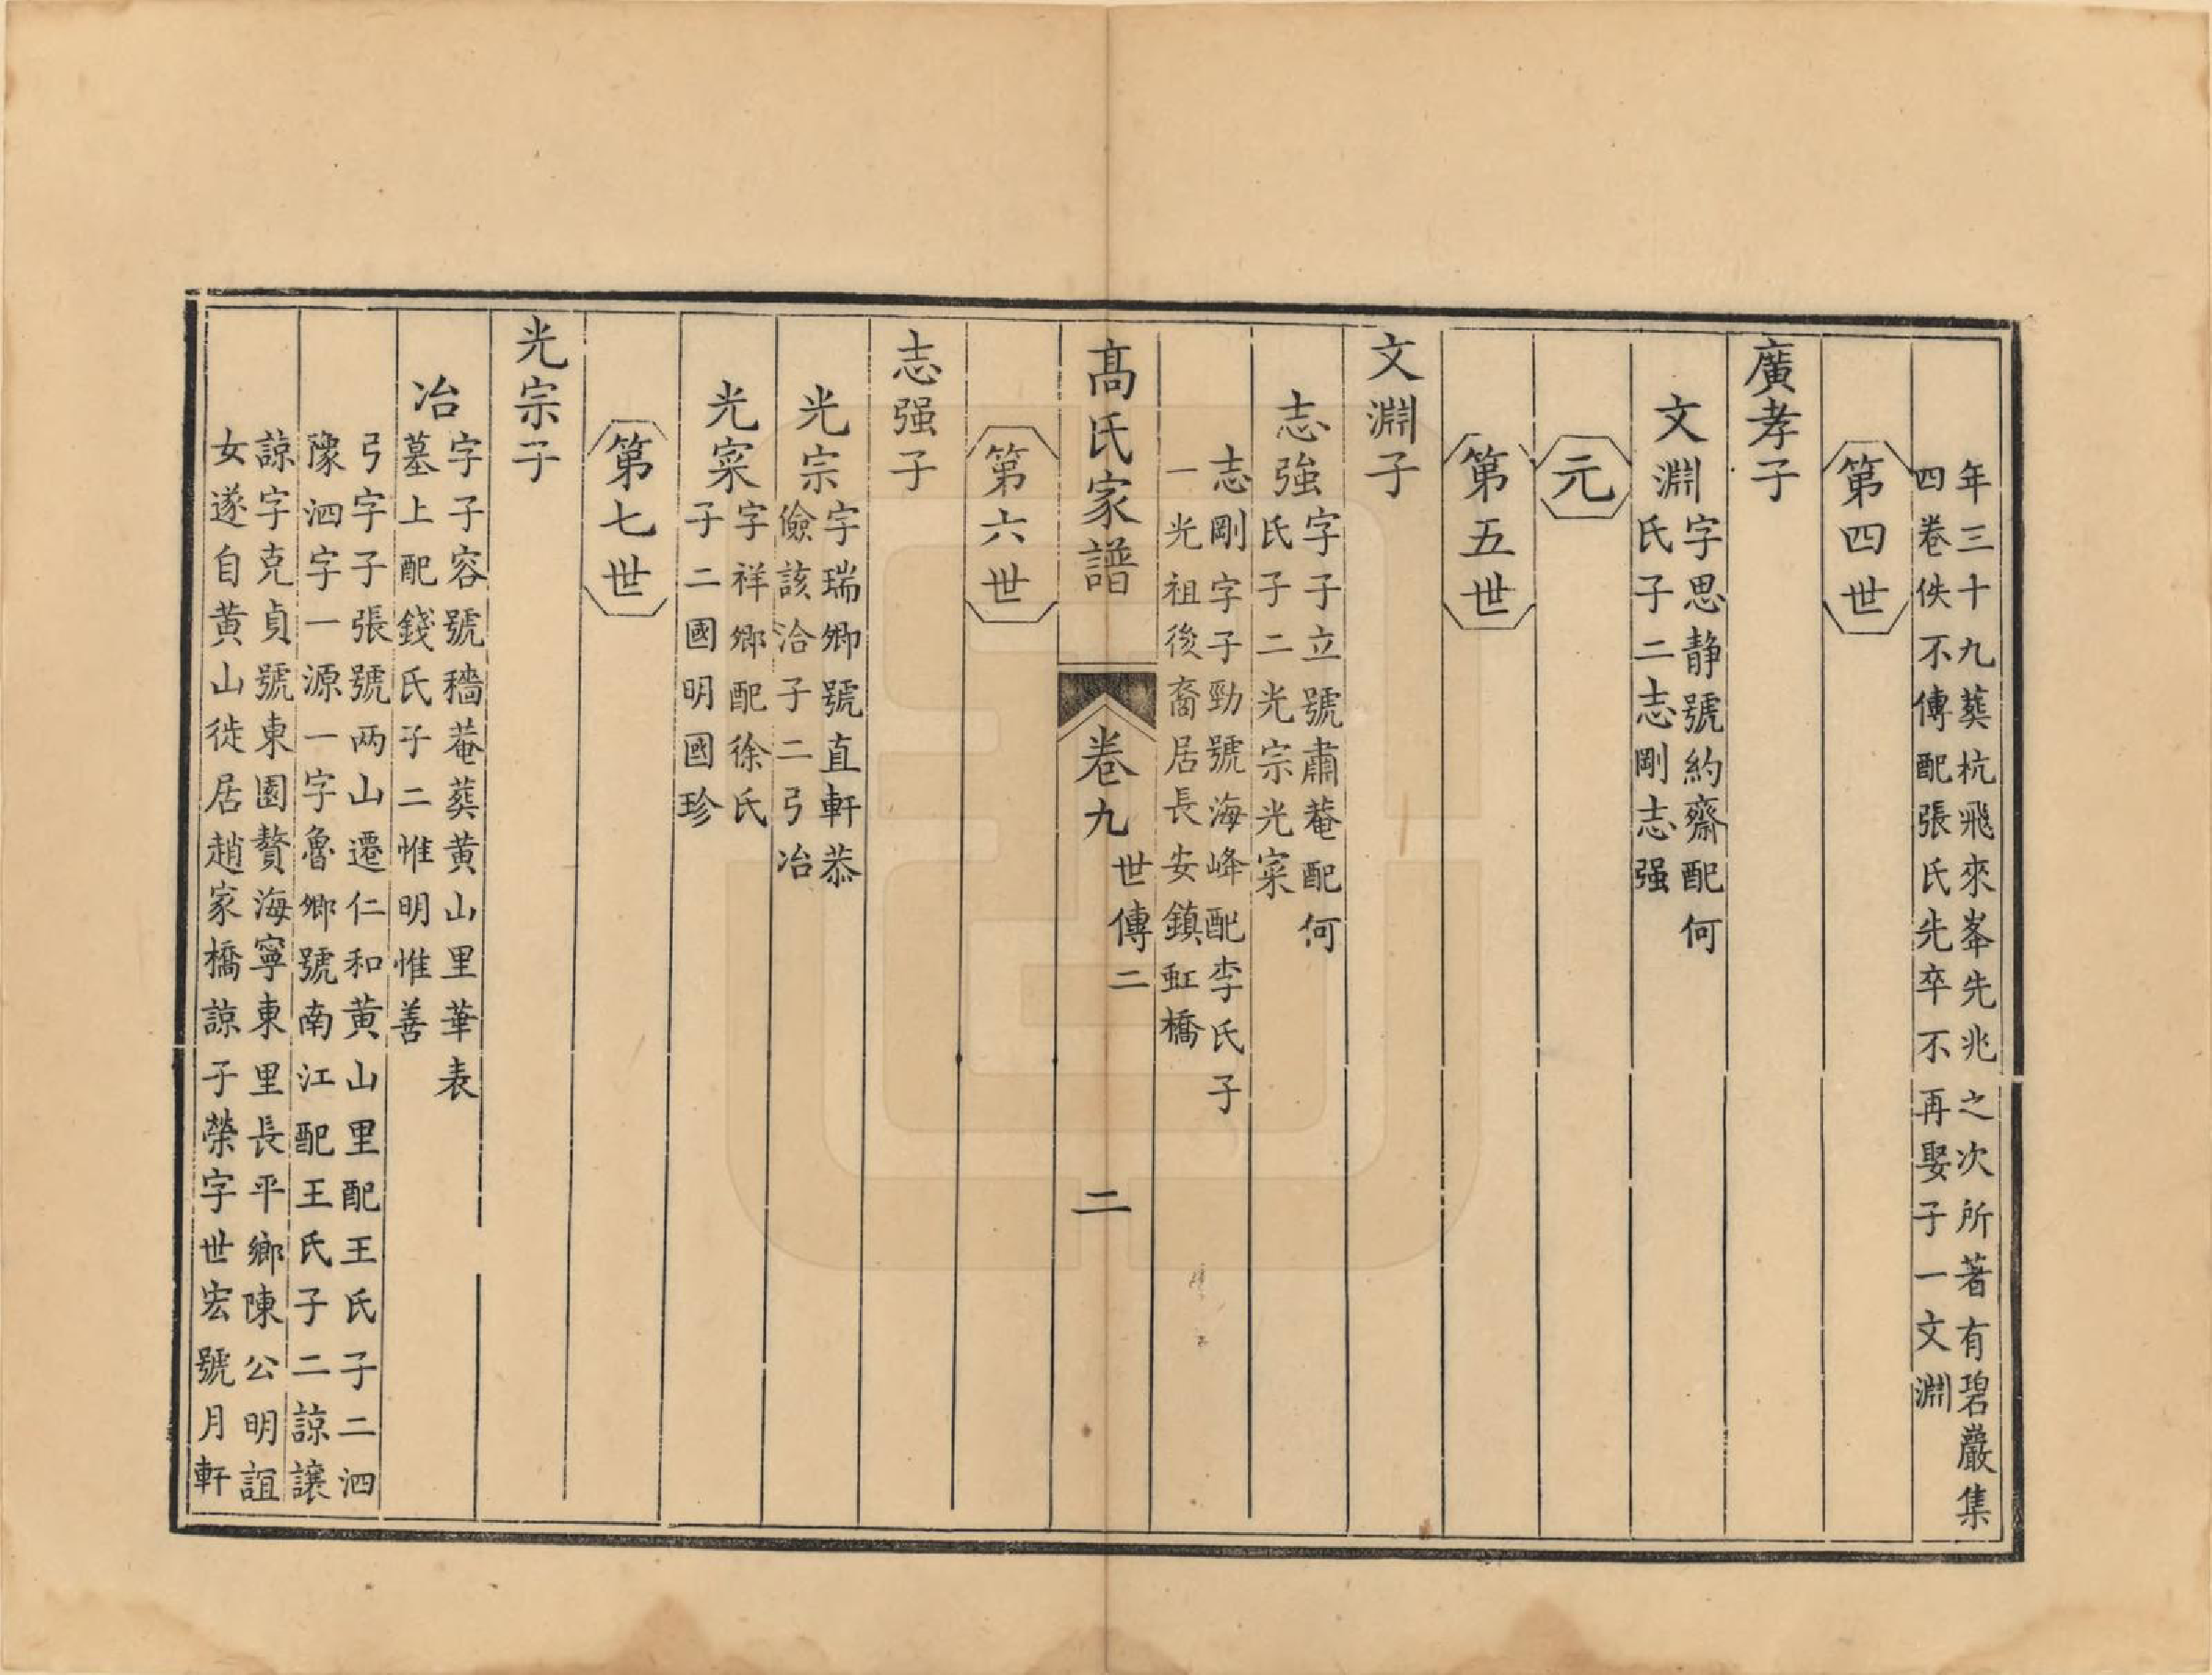 年三十九葬杭飛來峯先兆之次所著有碧巖集
四卷佚不傳配張氏先卒不再娶子一文淵
第四世
廣孝子
文淵
字思静號約齋配何
氏子二志剛志强
元
第五世
文淵子
志強
字子立號肅菴配何
氏子二光宗光寀
志剛字子勁號海峰配李氏子
一光祖後裔居長安鎮虹橋
髙氏家譜
卷九
世傳二
二
第六世
志强子
光宗
字瑞卿號直軒恭
儉該洽子二弓冶
光寀
字祥卿配徐氏
子二國明國珍
第七世
光宗子
冶
字子容號穡菴葬黄山里華表
墓上配錢氏子二惟明惟善
弓字子張號两山遷仁和黄山里配王氏子二泗
豫泗字一源一字魯卿號南江配王氏子二諒讓
諒字克貞號東園贅海寧東里長平鄉陳公明誼
女遂自黄山徙居趙家橋諒子榮字世宏號月軒